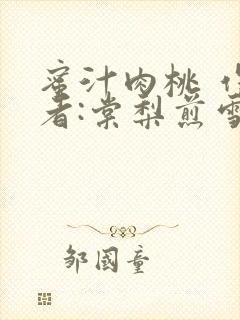 蜜汁肉桃 作
者:棠梨煎雪
邹國童